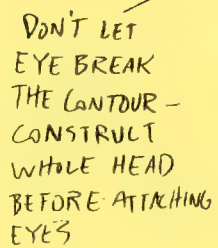 DON'T LET
EYE BREAK
THE CONTOUR -
CONSTRUCT
WHOLE HEAD
BEFORE ATTACHING
EYES